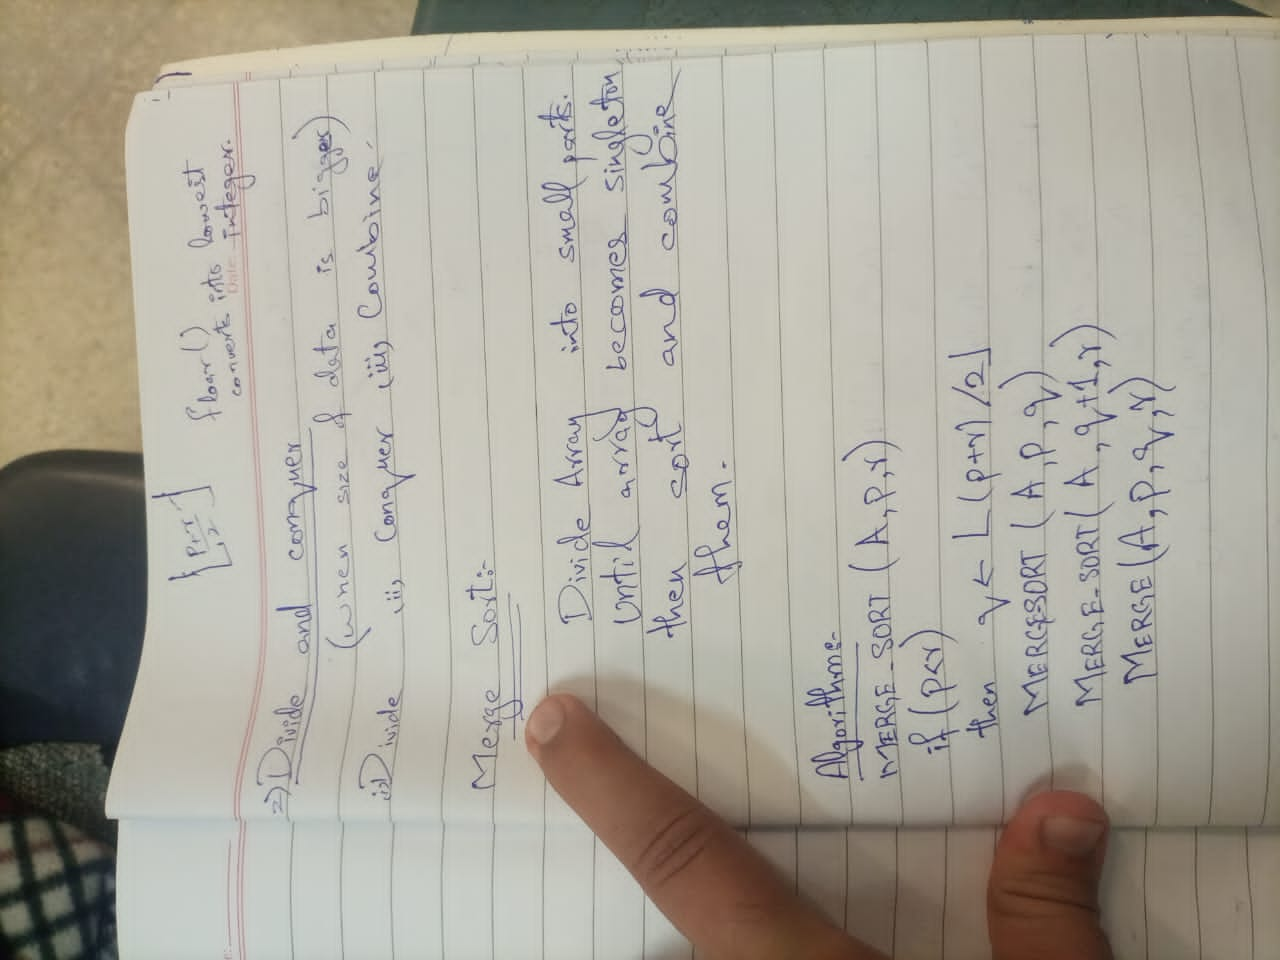 ⌊p+r/2⌋ floor()
converts into lowest
integer.
Date
2) Divide and conquer
(when size of data is bigger)
i) Divide ii, Conquer iii, Combine.
Merge Sort:-
Divide Array into small parts.
Until array becomes singleton
then sort and combine
them.
Algorithme-
MERGE-SORT (A,p,r)
if (p<r)
then q← ⌊(p+r)/2⌋
MERGESORT (A,p,q)
MERGE-SORT (A,q+1,r)
MERGE (A,p,q,r)